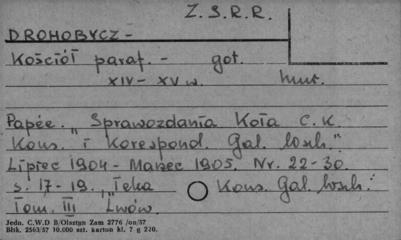 Z. S. R. R.
DROHOBYCZ -
Kościół paraf. - got.
XIV - XV w. mur.
Papée. "Sprawozdania Koła C. K.
Kons. i Korespond. Gal. wsch."
Lipiec 1904 - Marzec 1905. Nr. 22-30.
s. 17-19. "Teka Kons. Gal. wsch."
Tom. III Lwów.
Jedn. C.W.D B/Olsztyn Zam 2776 /on/57
Błtk. 2563/57 10.000 szt. karton kl. 7 g 220.